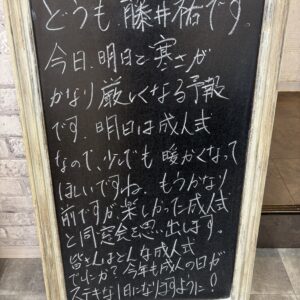 どうも、藤井祐です。
今日、明日と寒さが
かなり厳しくなる予報
です。明日は成人式
なので、少しでも暖かくなって
ほしいですね。もうかなり
前ですが、楽しかった成人式
と同窓会を思い出します。
皆さんはどんな成人式
でしたか？今年も成人の日が
ステキな1日になりますように！